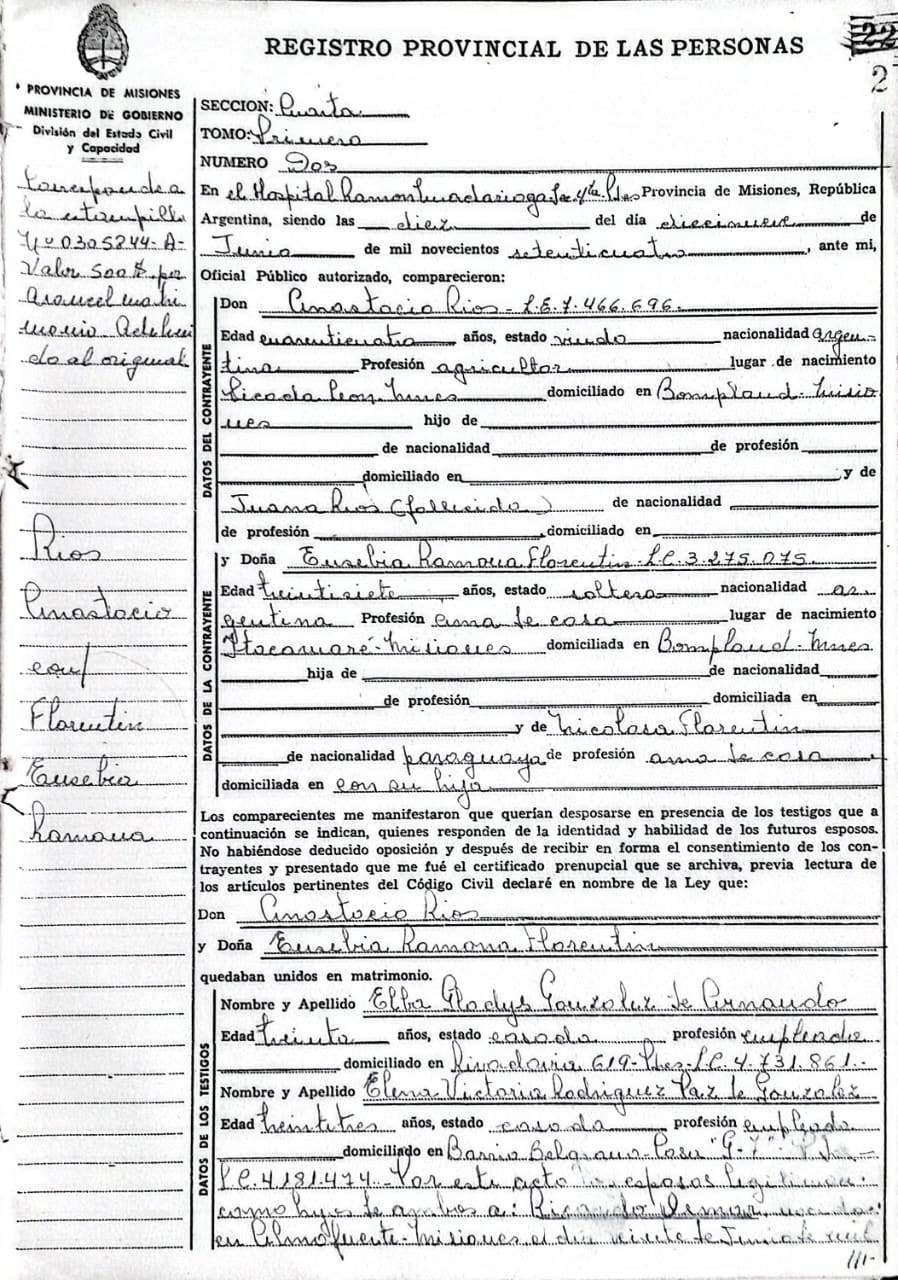 REGISTRO PROVINCIAL DE LAS PERSONAS
22
2
PROVINCIA DE MISIONES
MINISTERIO DE GOBIERNO
División del Estado Civil
y Capacidad
Corresponde a
la estampilla
Nº 0305244-A-
Valor 500 $ por
Arancel matri
monio Adheri
do al original
Rios
Anastacio
con/
Florentin
Eusebia
Ramona
SECCION: Cuarta
TOMO: Primero
NUMERO Dos
En el Hospital Ramon Madariaga Sec 4ta Pdas Provincia de Misiones, República
Argentina, siendo las diez del día diecinueve de
Junio de mil novecientos setenticuatro, ante mi,
Oficial Público autorizado, comparecieron:
DATOS DEL CONTRAYENTE
Don Anastacio Rios - L.E. 7.466.696.
Edad cuarenticuatro años, estado viudo nacionalidad argen-
tina Profesión agricultor lugar de nacimiento
Picada Leon Mnes domiciliado en Bompland - Misio
nes hijo de
de nacionalidad de profesión
domiciliado en y de
Juana Rios (fallecida) de nacionalidad
de profesión domiciliado en
DATOS DE LA CONTRAYENTE
y Doña Eusebia Ramona Florentin L.C. 3.275.075.
Edad treintisiete años, estado soltera nacionalidad ar
gentina Profesión ama de casa lugar de nacimiento
Itacamaré - Misiones domiciliada en Bompland - Mnes
hija de de nacionalidad
de profesión domiciliada en
y de Nicolasa Florentin
de nacionalidad paraguaya de profesión ama de casa
domiciliada en con su hija
Los comparecientes me manifestaron que querían desposarse en presencia de los testigos que a
continuación se indican, quienes responden de la identidad y habilidad de los futuros esposos.
No habiéndose deducido oposición y después de recibir en forma el consentimiento de los con-
trayentes y presentado que me fué el certificado prenupcial que se archiva, previa lectura de
los artículos pertinentes del Código Civil declaré en nombre de la Ley que:
Don Anastacio Rios
y Doña Eusebia Ramona Florentin
quedaban unidos en matrimonio.
DATOS DE LOS TESTIGOS
Nombre y Apellido Elba Gladys Gonzalez de Arnaudo
Edad treinta años, estado casada profesión empleada
domiciliado en Rivadavia 619 - Pdas - L.C. 4.731.861.-
Nombre y Apellido Elena Victoria Rodriguez Paz de Gonzalez
Edad treintitres años, estado casada profesión empleada
domiciliado en Barrio Belgrano Casa "G-7"
L.C. 4.181.474. - Por este acto los esposos legitiman
como hijos de ambos a: Ricardo Osmar nacido
en Almafuerte - Misiones el día veinte de Junio de mil
///-